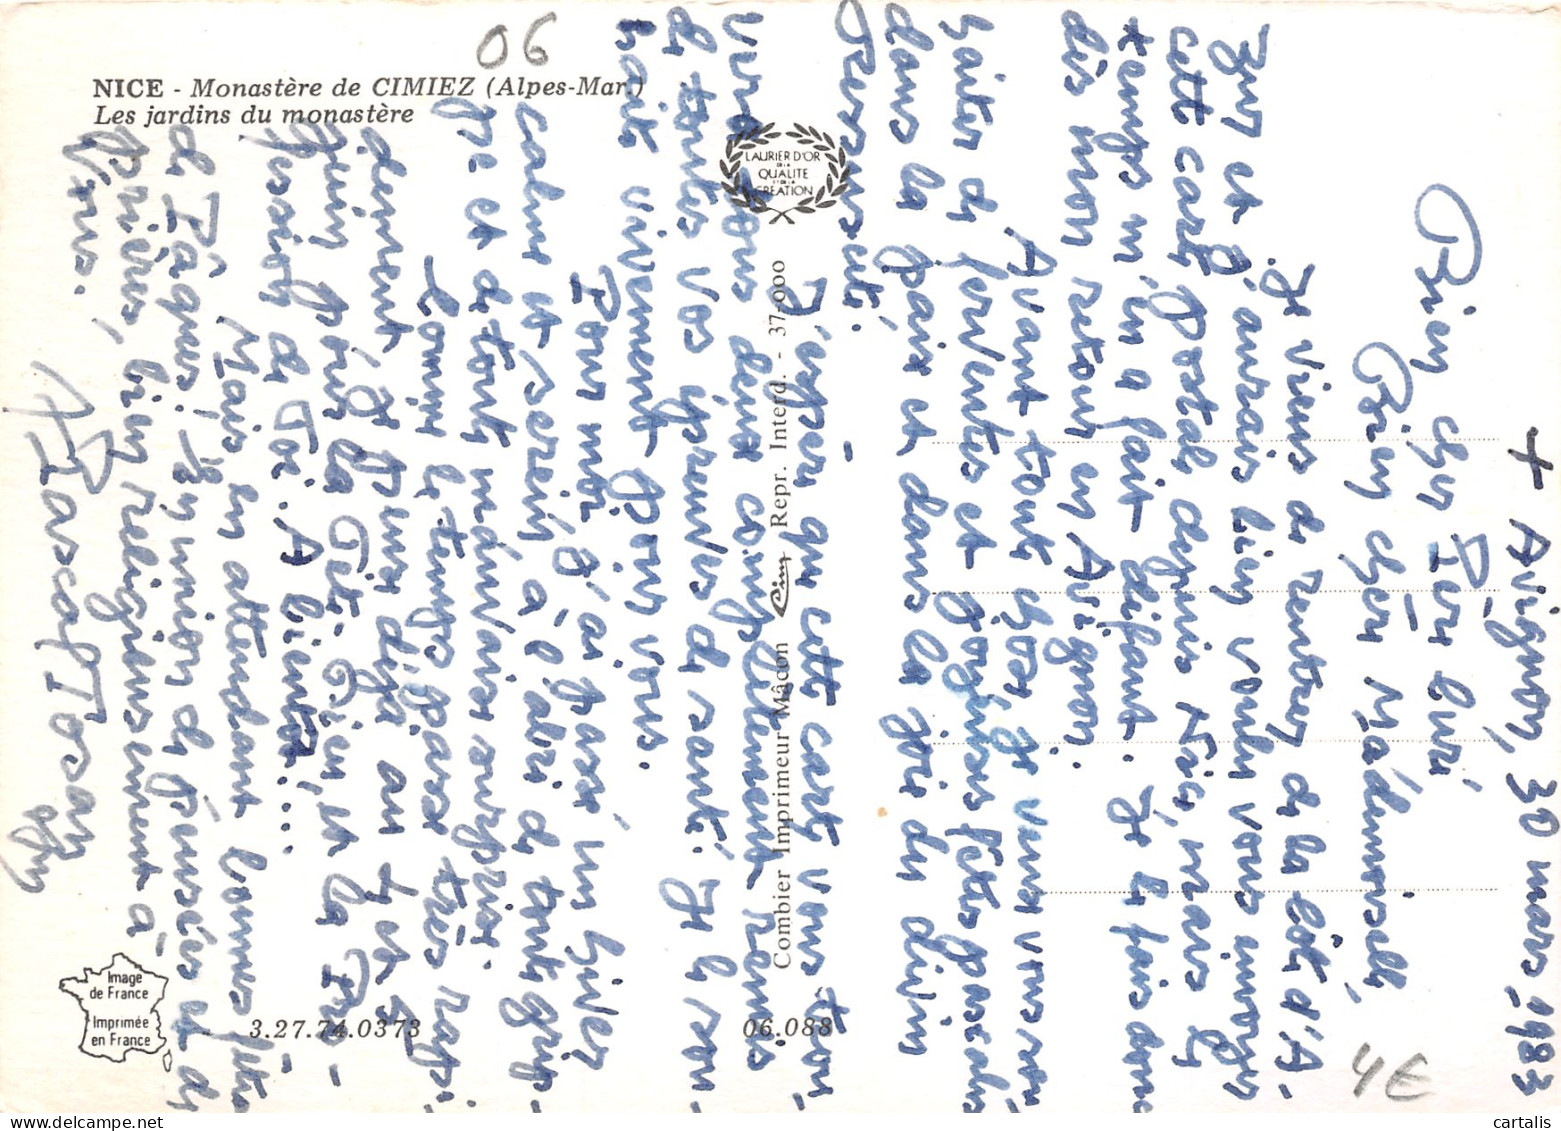 06
NICE - Monastère de CIMIEZ (Alpes-Mar.)
Les jardins du monastère
LAURIER D'OR
DE LA
QUALITE
ET DE LA
CREATION
Combier Imprimeur Mâcon Cim Repr. Interd. - 37-000
Image
de France
Imprimée
en France
3.27.74.0373
06.088
4€
+ Avignon, 30 mars 1983
Bien cher Père Curé
Bien chère Mademoiselle,
Je viens de rentrer de la Côte d'A-
zur et j'aurais bien voulu vous envoyer
cette carte postale depuis Nice, mais le
temps m'en a fait défaut. Je le fais donc
dès mon retour en Avignon.
Avant toute chose je veux vous sou-
haiter de ferventes et joyeuses fêtes pascales
dans la paix et dans la joie du divin
Ressuscité.
J'espère que cette carte vous trou-
vera tous deux complètement remis
de toutes vos épreuves de santé. Je le sou-
haite vivement pour vous.
Pour moi, j'ai passé un hiver
calme et serein, à l'abri de toute grip-
pe et de toute mauvaise surprise.
Comme le temps passe très rapi-
dement, je pense déjà au 4 et 5
juin pour la Fête-Dieu, et la Pro-
fession de Foi. A bientôt...
Mais en attendant bonnes fêtes
de Pâques! En union de pensées et de
prières, bien religieusement à
vous.
Pascal Tosay